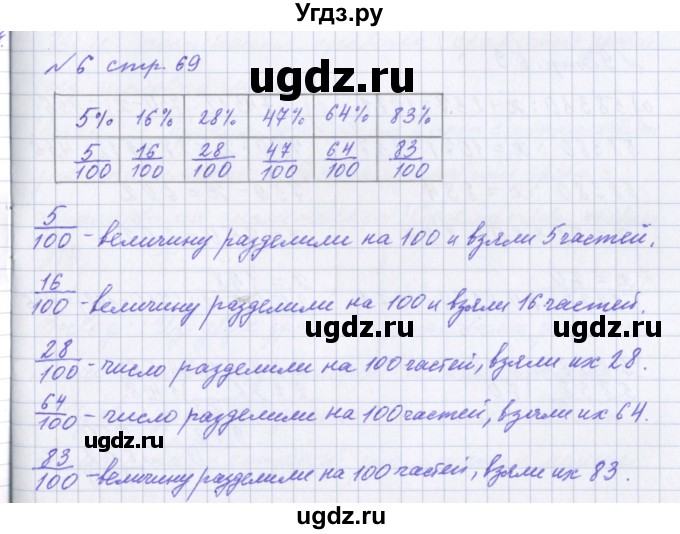 Угдз.ру
№ 6 стр. 69
ugdz.ru
5% 16% 28% 47% 64% 83%
5/100 16/100 28/100 47/100 64/100 83/100
5/100 - величину разделили на 100 и взяли 5 частей.
ugdz.ru
16/100 - величину разделили на 100 и взяли 16 частей.
ugdz.ru
ugdz.ru
28/100 - число разделили на 100 частей, взяли их 28.
64/100 - число разделили на 100 частей, взяли их 64.
ugdz.ru
83/100 - величину разделили на 100 частей, взяли их 83.
ugdz.ru